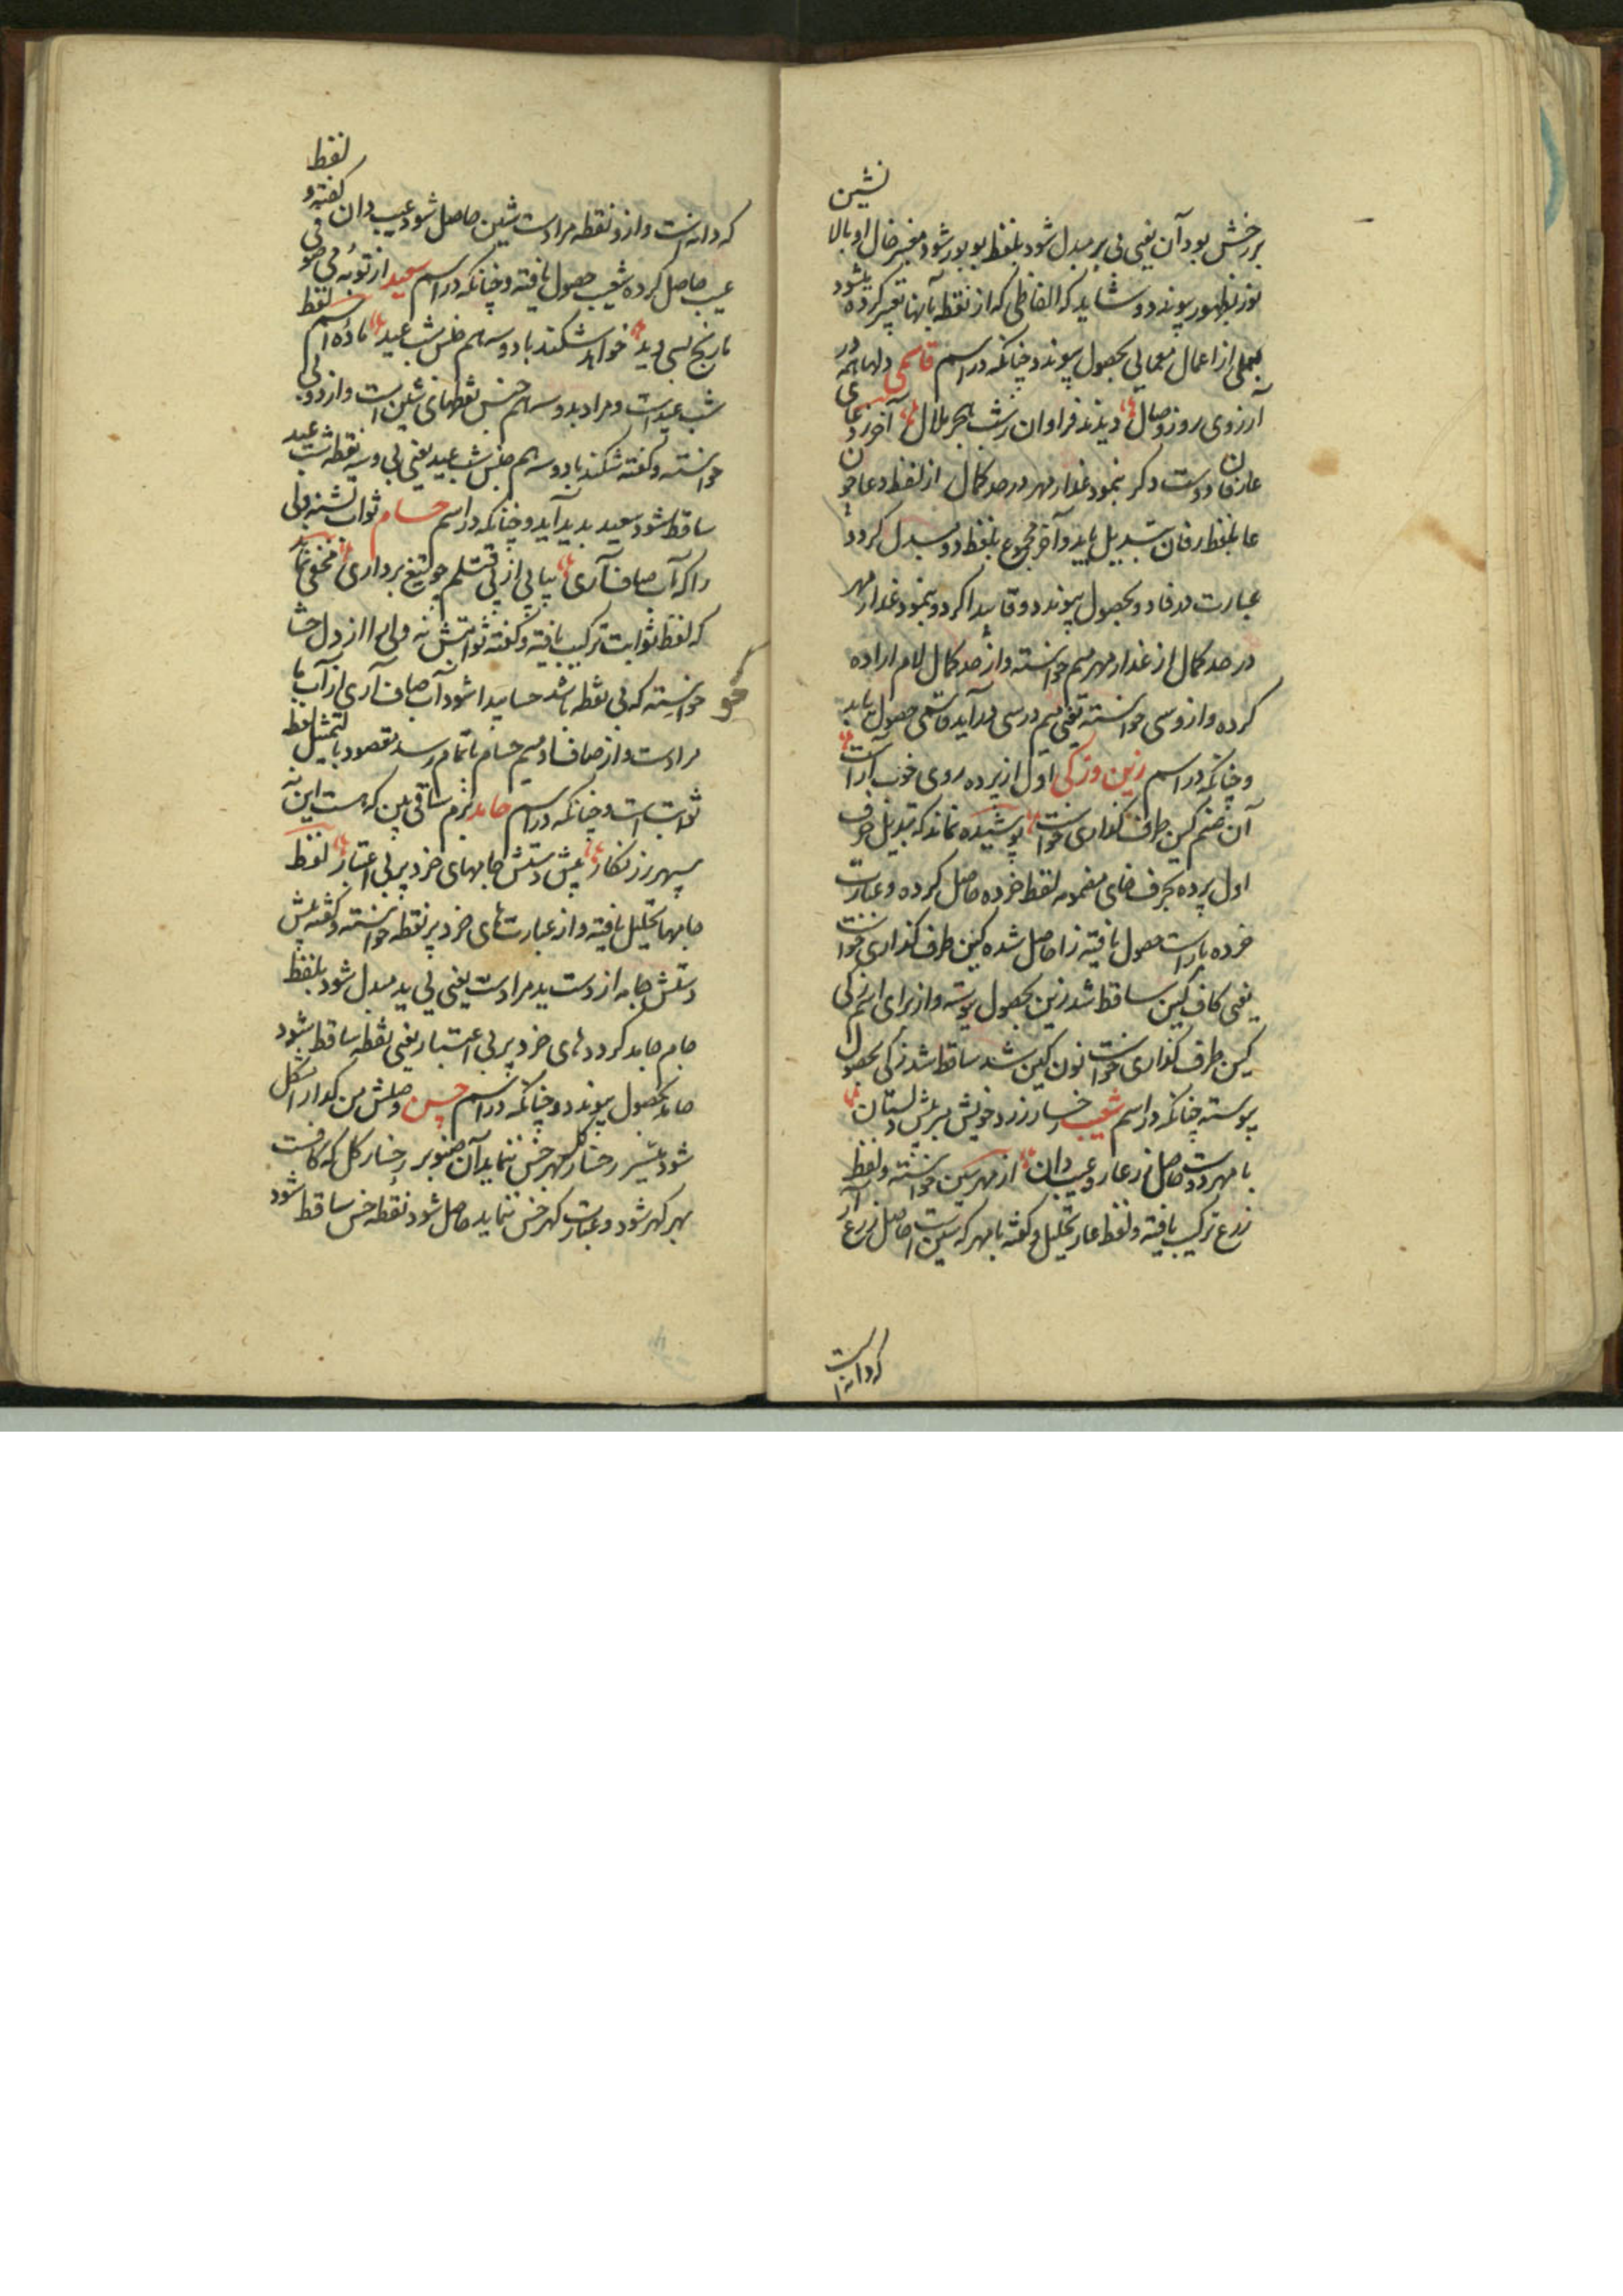 نشین
بر رخش بود آن یعنی نی بر مبدل شود بلفظ بو بور شود مخبر خال او بالا
نوز بظهور پیوندد و شاید که الفاظی که از نقطه بآنها تعبیر کرده شود
بعملی از اعمال معمایی بحصول پیوندد چنانکه در اسم قاسمی دلها همه در
آرزوی روز وصال دیدند فراوان ز شب هجر ملال آخر دعای
عارفان دوست دکر بنمود عذار مهر در صد کمال از لفظ دعا چون
عا بلفظ رفان تبدیل یابد و آخر مجموع بلفظ دو مبدل کردد
عبارت دفاد و بحصول پیوندد و قا پیدا کردد و بنمود عذار مهر
در صد کمال از عذار مهر میم خواسته و از صد کمال لام اراده
کرده و از و سی خواسته یعنی میم در سی درآید قاسمی حصول یابد
و چنانکه در اسم زین و زکی اول از پرده روی خوب آراست
آن صنم کین طرف کذاری خواست پوشیده نماند که تبدیل حرف
اول پرده بحرف خای مضمومه لفظ خرده حاصل کرده و عبارت
خرده یاراست حصول یافته زا حاصل شده کین طرف کذاری خواست
یعنی کاف کین ساقط شد زین بحصول پیوسته و از برای اسم زکی
کین طرف کذاری خواست نون کین شد ساقط شد زکی بحصول
پیوسته چنانکه در اسم شعیب رخسار زرد خویش بر پیش دلستان
با مهر دوست حاصل زرعار و عیب دان از مهر سین خواسته و لفظ
زرع ترکیب یافته و لفظ عار تحلیل و کفته با مهر که سین است حاصل زرع آر
که دانه است
لفظ
که دانه است و از و نقطه مراد است شین حاصل شود عیب دان کفته و
عیب حاصل کرده شعیب حصول یافته و چنانکه در اسم سعید از توبه می صو
تا رنج بسی دید خواهد شکند با دو سه هم جنس شب عید ماده اسم لفظ
شب عید است و مراد بدو سه هم جنس نقطهای شین است و از دو بی
خواسته و کفته شکند با دو سه هم جنس شب عید یعنی بی و سه نقطه شب عید
ساقط شود سعید بدید آید و چنانکه در اسم حسام ثواب تشنه دلی
را که آب صاف آری بیا پی از پی قتلم چو تیغ برداری مخفی نماند
که لفظ ثوابت ترکیب یافته و کفته ثوابتش نه و لی را از دل حشا
خواسته که بی نقطه باشد حسا پیدا شود آب صاف آری از آب ما
مراد است و از صاف او میم حسام باتمام رسد مقصود بالتمثیل لفظ
ثوابت است و چنانکه در اسم حامد بزم ساقی بین که هست این نه
سپهر زرنکار پیش دستش جامهای خرد پر بی اعتبار لفظ
جامها تحلیل یافته و از عبارت های خرد پر نقطه خواسته و کفته پیش
دستش جامه از دست ید مراد است یعنی یی ید مبدل شود بلفظ
جام جامد کردد های خرد پر بی اعتبار یعنی نقطه ساقط شود
حامد بحصول پیوندد و چنانکه در اسم حسن وصلش من کدا را مشکل
شود میسر رخسار کل بهر خس ننماید آن صنوبر رخسار کل که کافست
بهر کهر شود و عبارت کهر خس ننماید حاصل شود نقطه خس ساقط شود